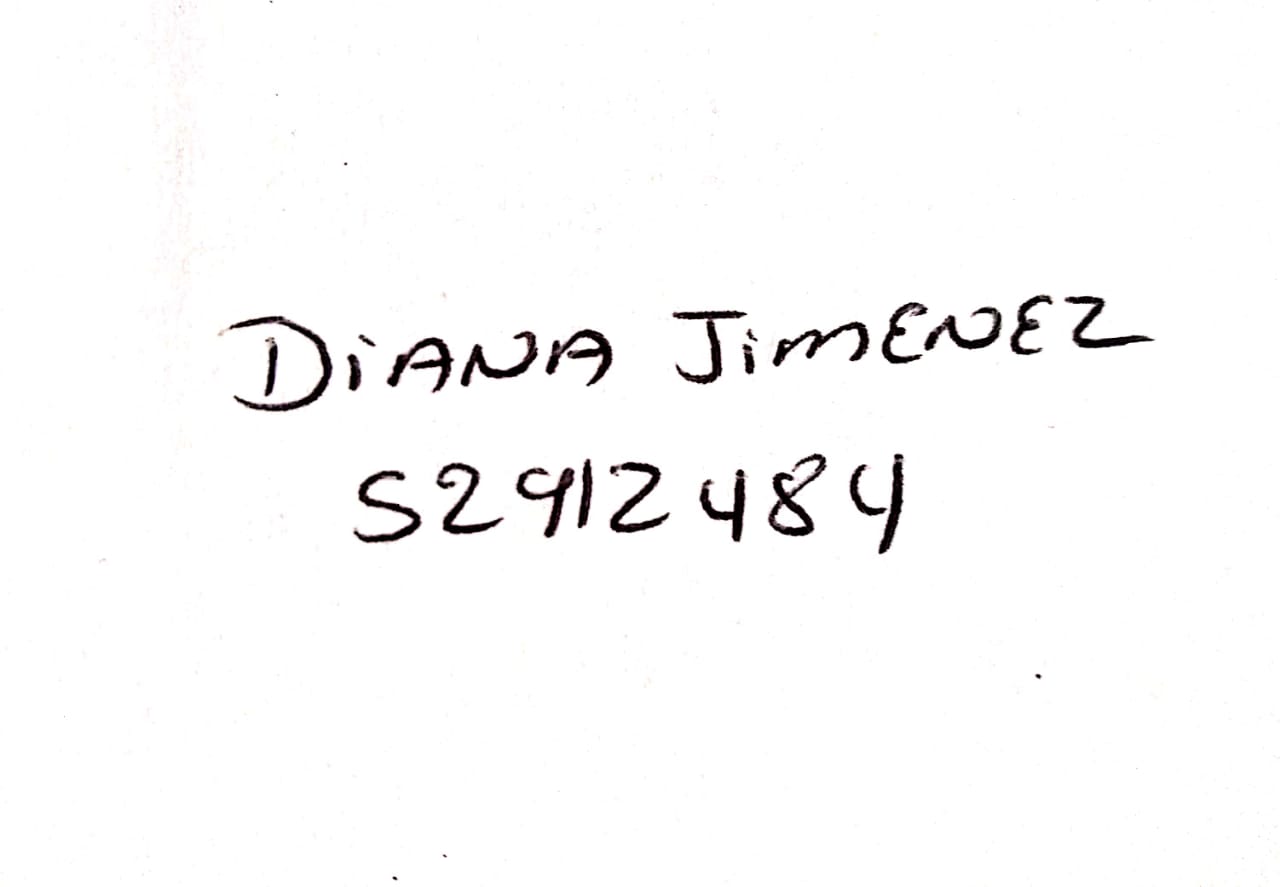 DiANA JimENEZ
52912484